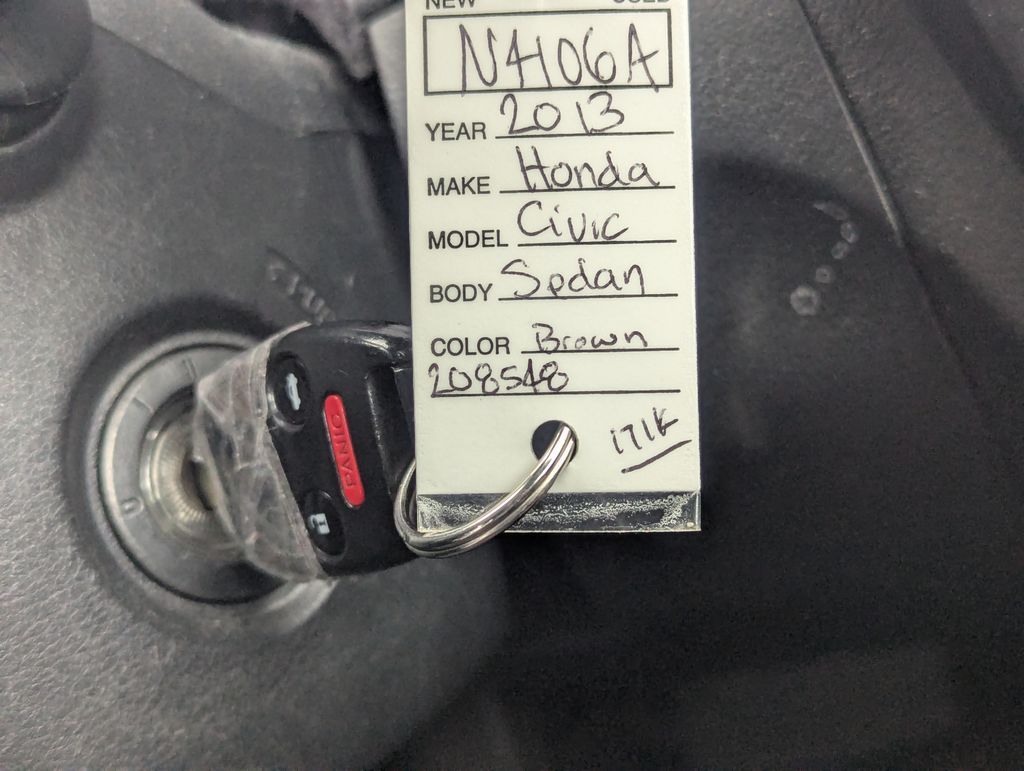 NEW USED
N4106A
YEAR 2013
MAKE Honda
MODEL Civic
BODY Sedan
COLOR Brown
208548
171K
PANIC
0